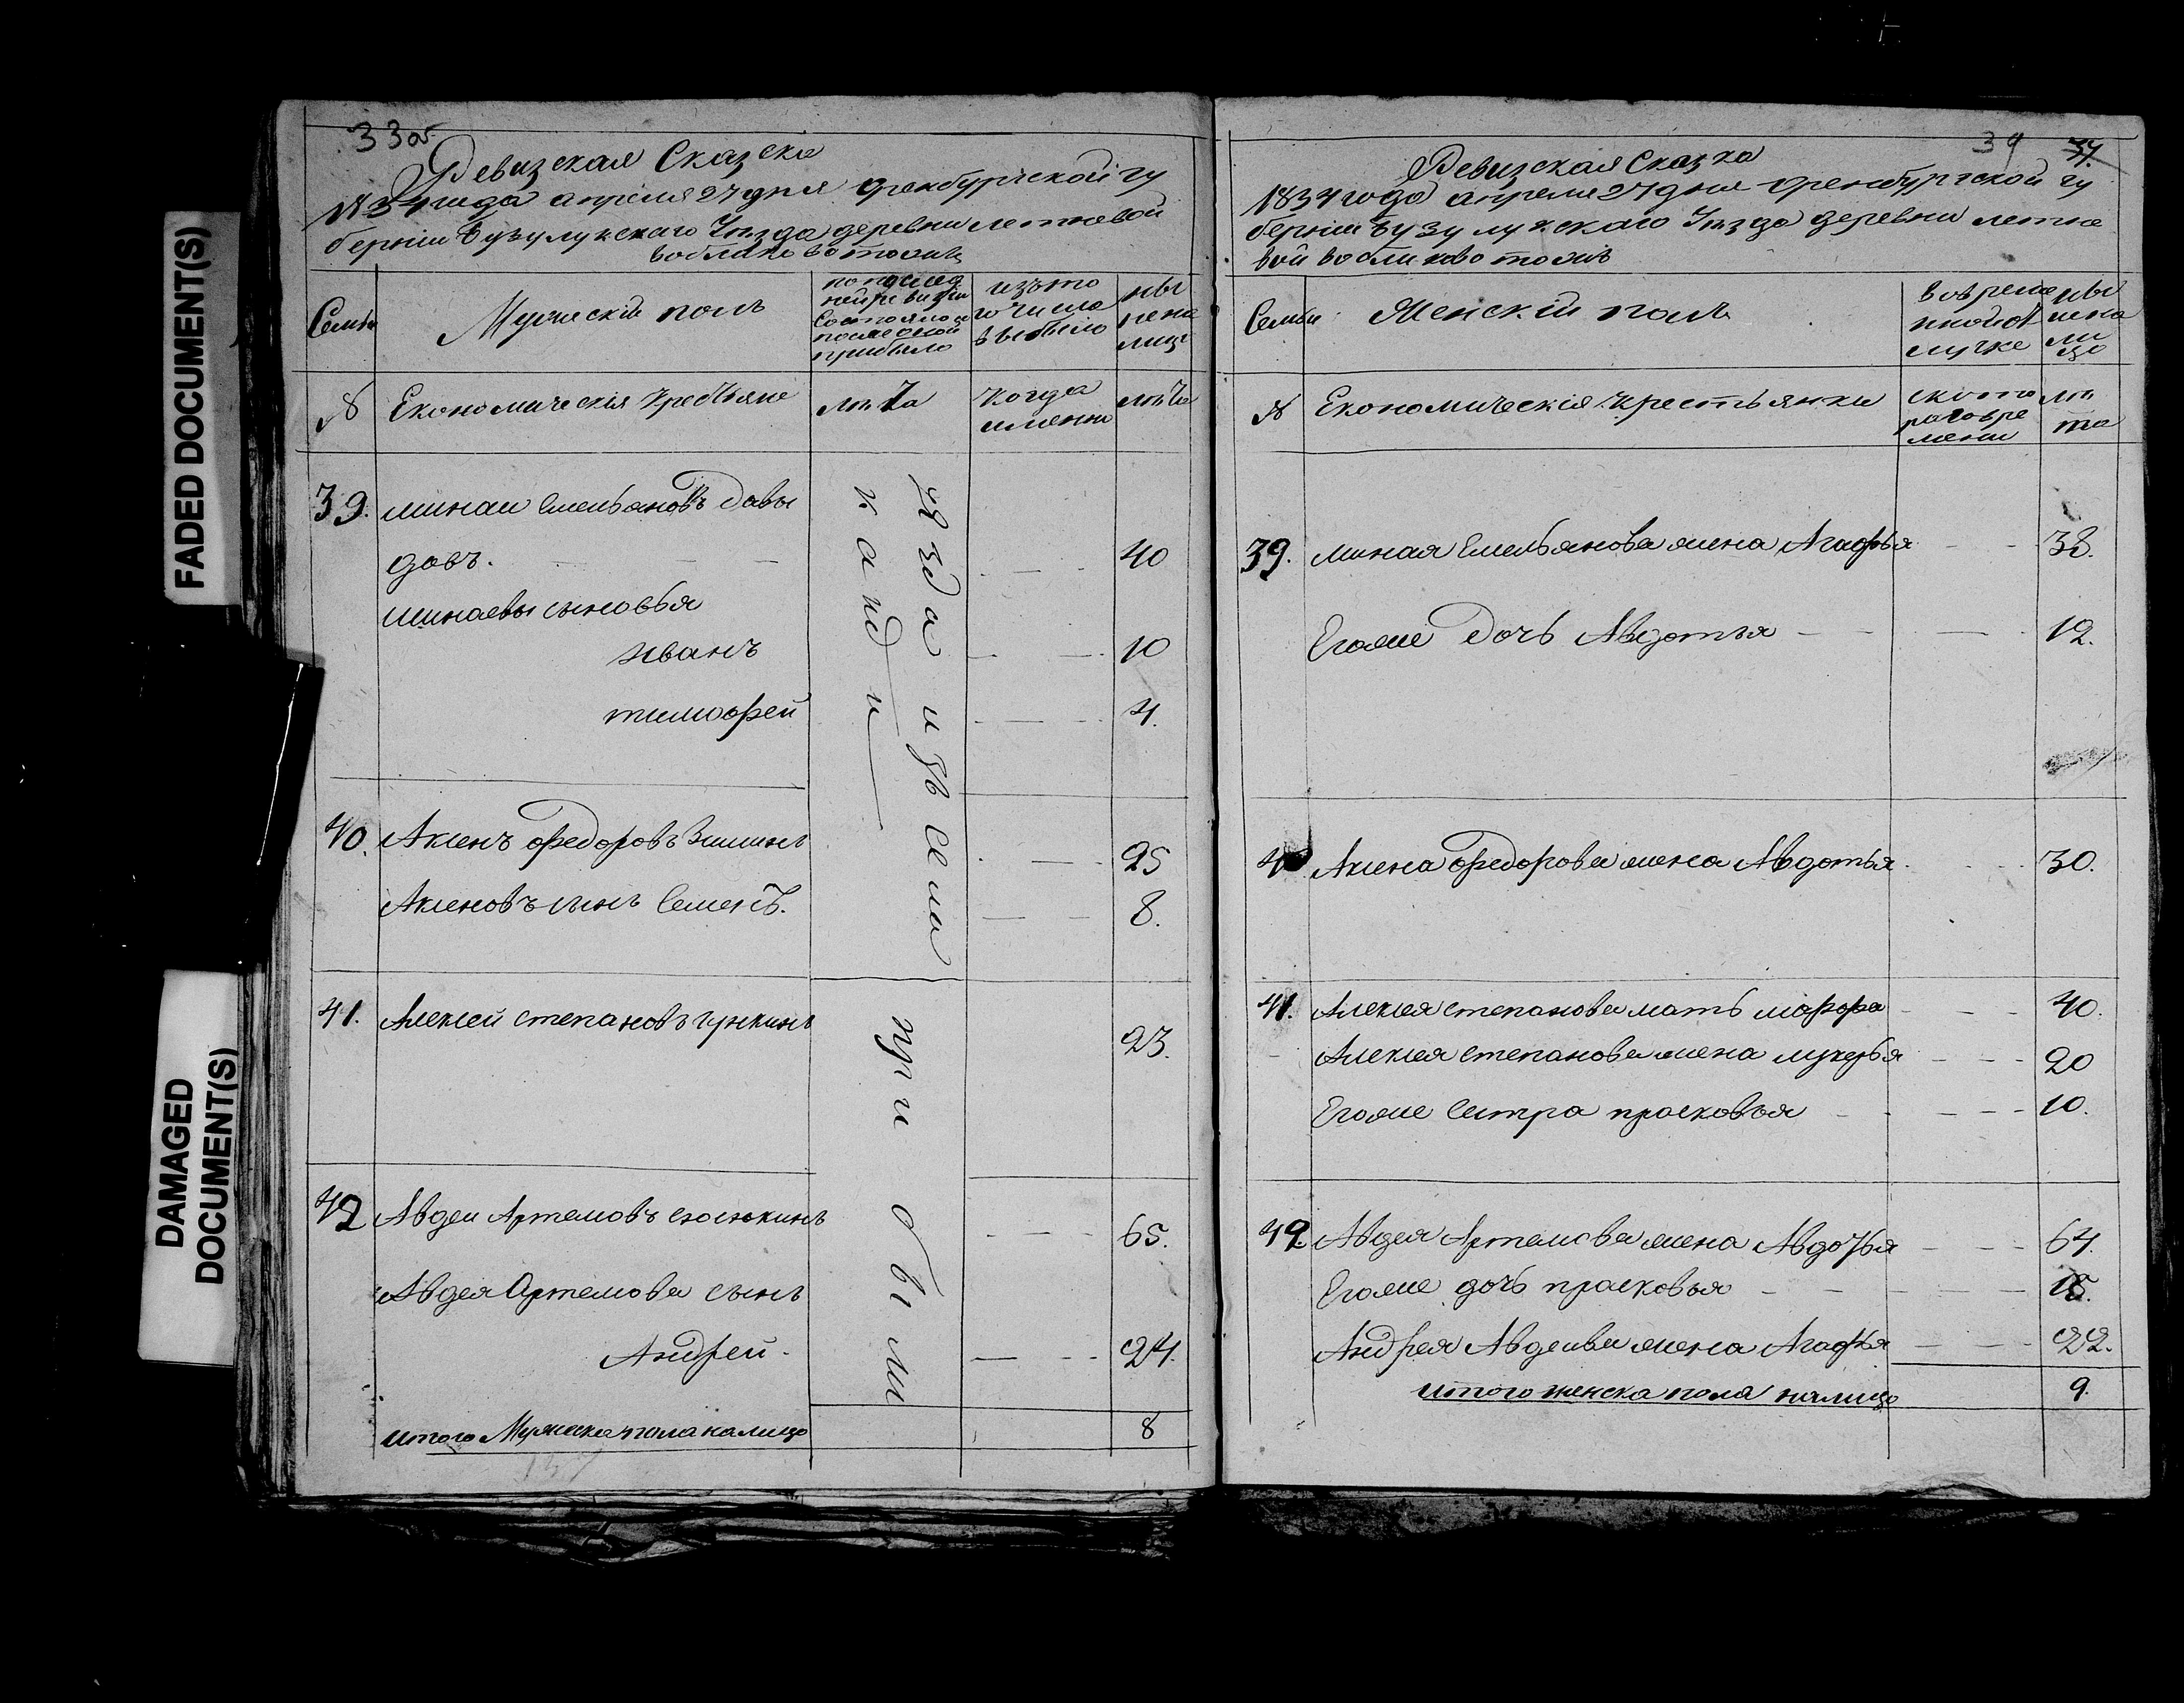 FADED DOCUMENT(S)
DAMAGED
DOCUMENT(S)
33об
Ревизская Сказска
1834 года апреля 27 дня оренбургской гу
берніи Бузулукскаго Уѣзда деревни летновой
Семьи
Мужескій полъ
по послед
ней ревизіи
состояло и
после оной
прибыло
изъ то
го числа
выбыло
ны
нена
лицо
№
Економическія крестьяне
лѣта
когда
именно
лѣта
39. минаи емельяновъ Давы
довъ. 40
минаевы сыновья
иванъ 10
тимофей 4.
40. Аксенъ Федоровъ Зиминъ 25
Аксеновъ сынъ Семенъ. 8.
41. Алексей степановъ гункинъ 23.
42 Авдеи Артемовъ сюсюкинъ 65.
Авдея Артемова сынъ
Андрей. 24.
итого Мужеска пола налицо 8
уѣзда из семи
при
34 34.
Ревизская Сказка
1834 года апреля 27 дня оренбургской гу
берніи Бузулукскаго Уѣзда деревни летно
вой
Семьи
Женскій полъ
вовреме
нной от
лучке
ны
нена
ли
цо
№
Економическія крестьянки
с кото
раго вре
мени
лѣ
та
39. миная емельянова жена Агафья 38.
Егоже дочь Авдотья 12.
40 Аксена Федорова жена Авдотья 30.
41. Алексея степанова мать марфа 40.
Алексея степанова жена лукерья 20
Егоже сестра прасковья 10.
42. Авдея Артемова жена Авдотья 64.
Егоже дочь прасковья 18.
Андрея Авдеива жена Агафья 22.
итого женска пола налицо 9.